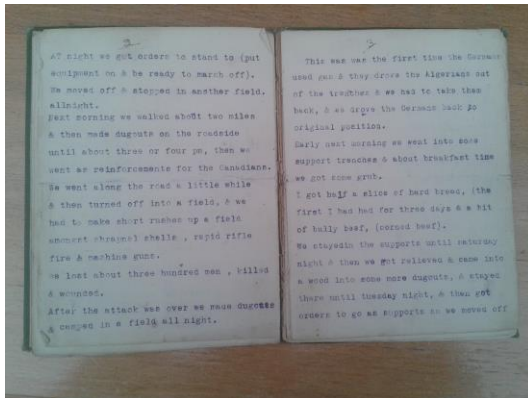 2
AT night we got orders to stand to (put
equipment on & be ready to march off).
We moved off & stopped in another field,
allnight.
Next morning we walked about two miles
& then made dugouts on the roadside
until about three or four pm, then we
went as reinforcements for the Canadians.
We went along the road a little while
& then turned off into a field, & we
had to make short rushes up a field
amongst shrapnel shells , rapid rifle
fire & machine guns.
We lost about three hundred men , killed
& wounded.
After the attack was over we made dugouts
& camped in a field all night.
3
This was was the first time the Germans
used gas & they drove the Algerians out
of the trenches & we had to take them
back, & we drove the Germans back to
original position.
Early next morning we went into some
support trenches & about breakfast time
we got some grub.
I got half a slice of hard bread, (the
first I had had for three days & a bit
of bully beef, (corned beef).
We stayedin the supports until saturday
night & then we got relieved & came into
a wood into some more dugouts, & stayed
there until tuesday night, & then got
orders to go as supports so we moved off